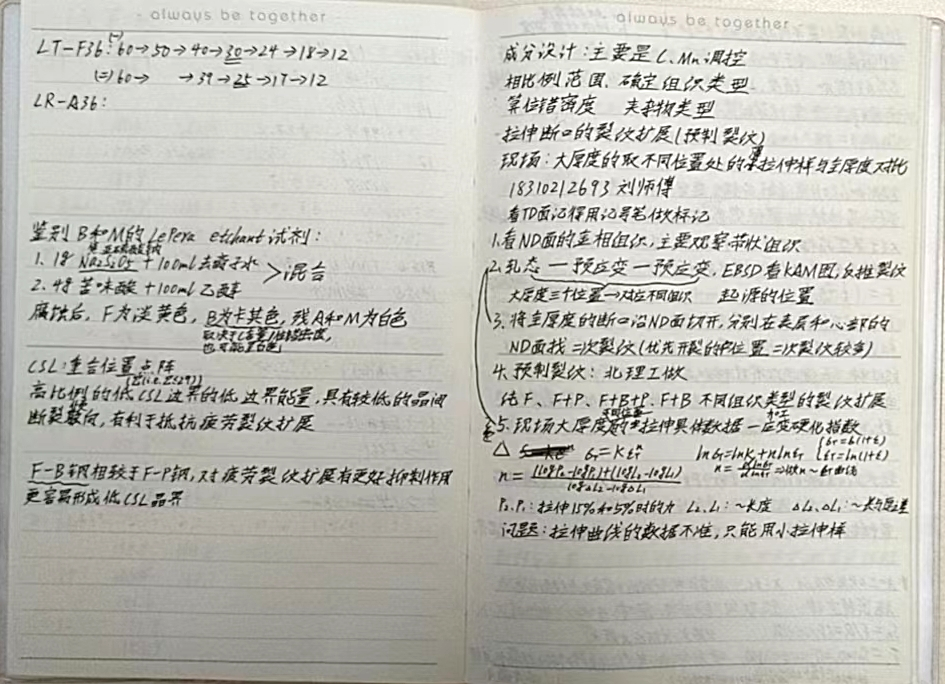 always be together
LT-F36:(一)60→50→40→30→24→18→12
(二)60→ →39→25→17→12
LR-A36:
鉴别B和M的LePera etchant试剂:
焦亚硫酸钠
1. 1g Na₂S₂O₅ + 100ml去离子水 >混合
2. 4g 苦味酸 + 100ml乙醇
腐蚀后,F为淡黄色,B为卡其色,残A和M为白色
取决于C含量/位错密度,
也可能呈白色
CSL:重合位置点阵
(Σ(i.e. Σ≤29))
高比例的低CSL边界的低边界能量,具有较低的晶间
断裂倾向,有利于抵抗疲劳裂纹扩展
F-B钢相较于F-P钢,对疲劳裂纹扩展有更好抑制作用
更容易形成低CSL晶界
always be together
成分设计:主要是C、Mn调控
相比例范围、确定组织类型
算位错密度 夹杂物类型
拉伸断口的裂纹扩展(预制裂纹)
现场:大厚度的取不同位置处的拉伸样与全厚度对比
18310212693 刘师傅
看TD面记得用记号笔做标记
1.看ND面的金相组织,主要观察带状组织
2.轧态—预应变—预应变,EBSD看KAM图,反推裂纹
大厚度三个位置→对应不同组织 起源的位置
3.将全厚度的断口沿ND面切开,分别在表层和心部的
ND面找二次裂纹(优先开裂的位置 二次裂纹较多)
4.预制裂纹:北理工做
纯F、F+P、F+B+P、F+B 不同组织类型的裂纹扩展
不同位置 加工
5.现场大厚度的拉伸具体数据—应变硬化指数
△ σT=KεTⁿ lnσT=lnK+nlnεT {σT=σ(1+ε)
εT=ln(1+ε)
n=(logP₂-logP₁+(logL₂-logL₁))/(logΔL₂-logΔL₁) n=dlnσT/dlnεT⇒做n~εT曲线
P₂、P₁:拉伸15%和5%时的力 L₂、L₁:~长度 ΔL₂、ΔL₁:~长与原差
问题:拉伸曲线的数据不准,只能用小拉伸样